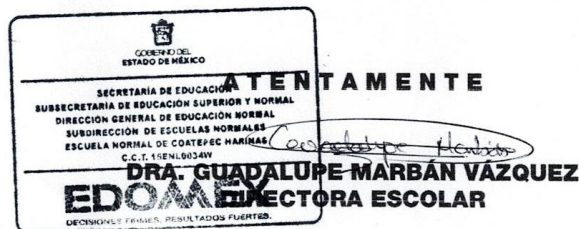 GOBIERNO DEL
ESTADO DE MÉXICO
SECRETARÍA DE EDUCACIÓN
SUBSECRETARÍA DE EDUCACIÓN SUPERIOR Y NORMAL
DIRECCIÓN GENERAL DE EDUCACIÓN NORMAL
SUBDIRECCIÓN DE ESCUELAS NORMALES
ESCUELA NORMAL DE COATEPEC HARINAS
C.C.T. 15ENL0034W
EDOMEX
DECISIONES FIRMES, RESULTADOS FUERTES.
ATENTAMENTE
Guadalupe Marbán
DRA. GUADALUPE MARBÁN VÁZQUEZ
DIRECTORA ESCOLAR